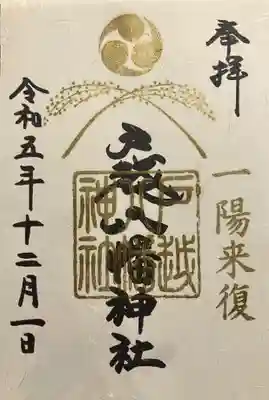 奉拝
一陽来復
戸越八幡神社
戸越八幡神社
令和五年十二月一日